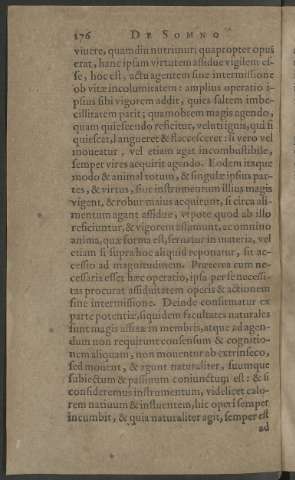 176 DE SOMNO
viuere, quamdiu nutrimur: quapropter opus
erat, hanc ipsam virtutem assidue vigilem es-
se, hoc est, actu agentem sine intermissione
ob vitæ incolumitatem: amplius operatio i-
psius sibi vigorem addit, quies saltem imbe-
cillitatem parit; quamobrem magis agendo,
quam quiescendo reficitur, veluti ignis, qui si
quiescet, langueret & flaccesceret: si vero vel
moueatur, vel etiam agat incombustibile,
semper vires acquirit agendo. Eodem itaque
modo & animal totum, & singulæ ipsius par-
tes, & virtus, siue instrumentum illius magis
vigent, & robur maius acquirunt, si circa ali-
mentum agant assidue, vtpote quod ab illo
reficiuntur, & vigorem assumunt, ac omnino
anima, quæ forma est, seruatur in materia, vel
etiam si supra hoc aliquid reponatur, fit ac-
cessio ad magnitudinem. Præterea cum ne-
cessaris esset hæc operatio, ipsa per se necessi-
tas procurat assiduitatem operis & actionem
sine intermissione. Deinde confirmatur ex
parte potentiæ, siquidem facultates naturales
sunt magis affixæ in membris, atque ad agen-
dum non requirunt consensum & cognitio-
nem aliquam, non mouentur ab extrinseco,
sed mouent, & agunt naturaliter, suumque
subiectum & passiuum coniunctum est: & si
consideremus instrumentum, videlicet calo-
rem natiuum & influentem, huic operi semper
incumbit, & quia naturaliter agit, semper est
ad